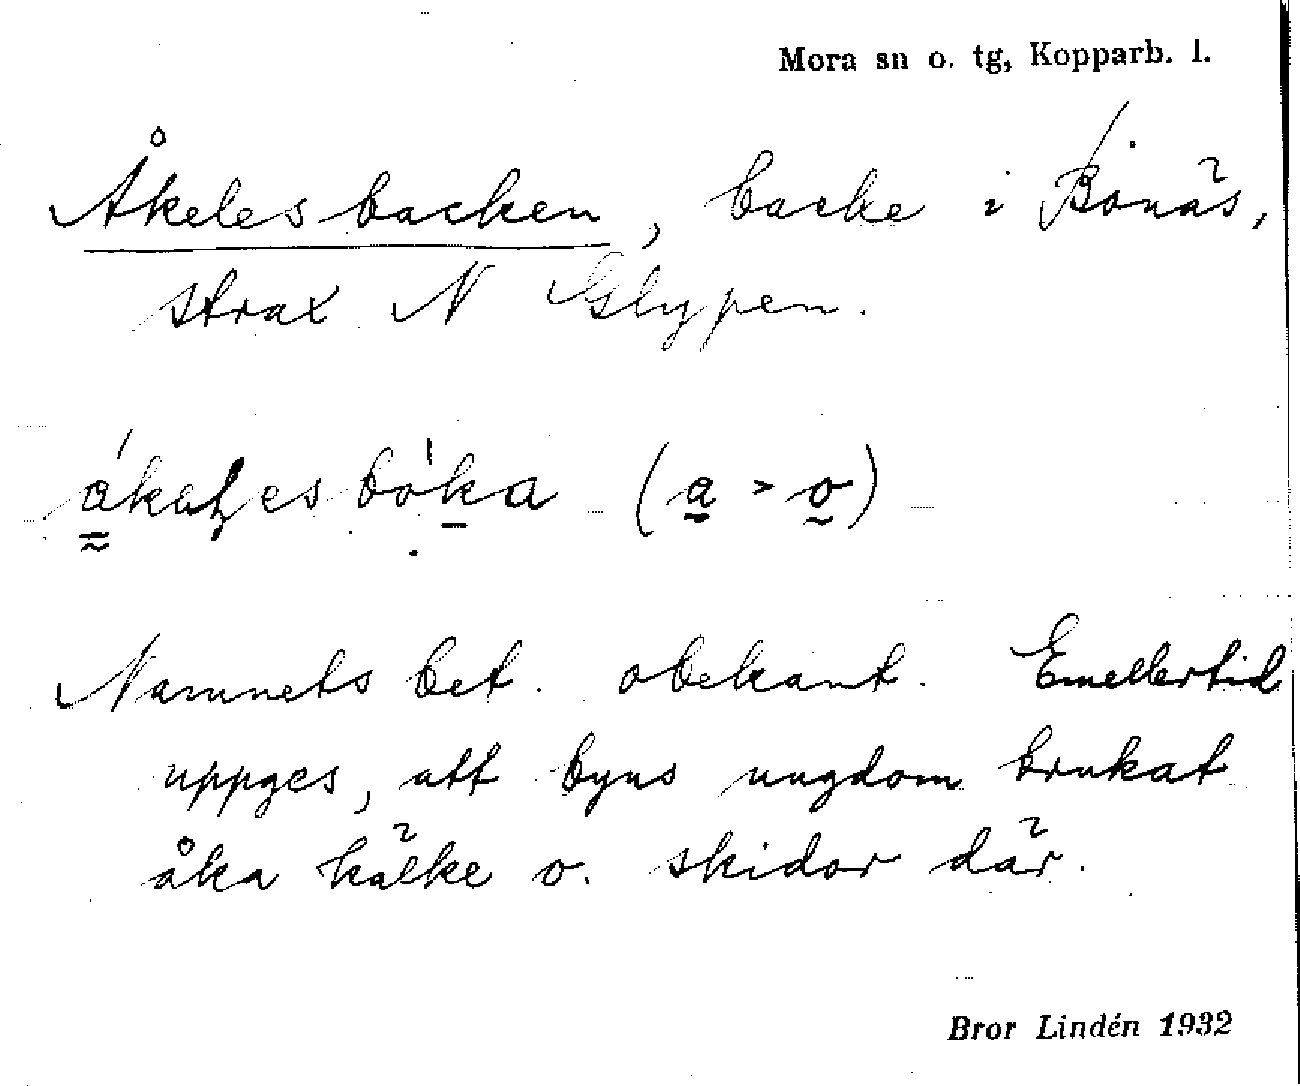 Mora sn o. tg, Kopparb. l.
Åkelesbacken, backe i Bonäs,
strax N Glypen.
(a > o)
Namnets bet. obekant. Emellertid
uppges, att byns ungdom brukat
åka kälke o. skidor där.
Bror Lindén 1932